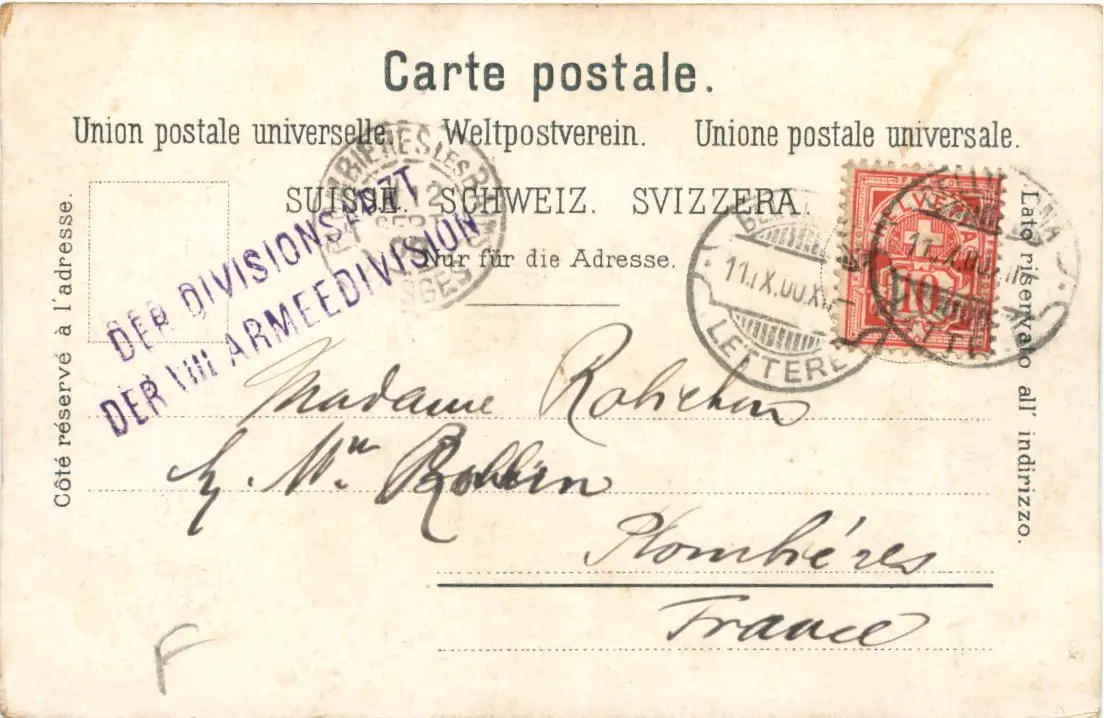 Carte postale.
Union postale universelle. Weltpostverein. Unione postale universale.
SUISSE. SCHWEIZ. SVIZZERA.
Nur für die Adresse.
Côté réservé à l'adresse.
Lato riservato all' indirizzo.
DER DIVISIONSARZT
DER VIII ARMEEDIVISION
PLOMBIERES LES BAINS
12
SEPT
VOSGES
11.IX.00.X
LETTERE
HELVETIA
10
Madame Robichon
Mme Rollin
Plombiéres
France
F